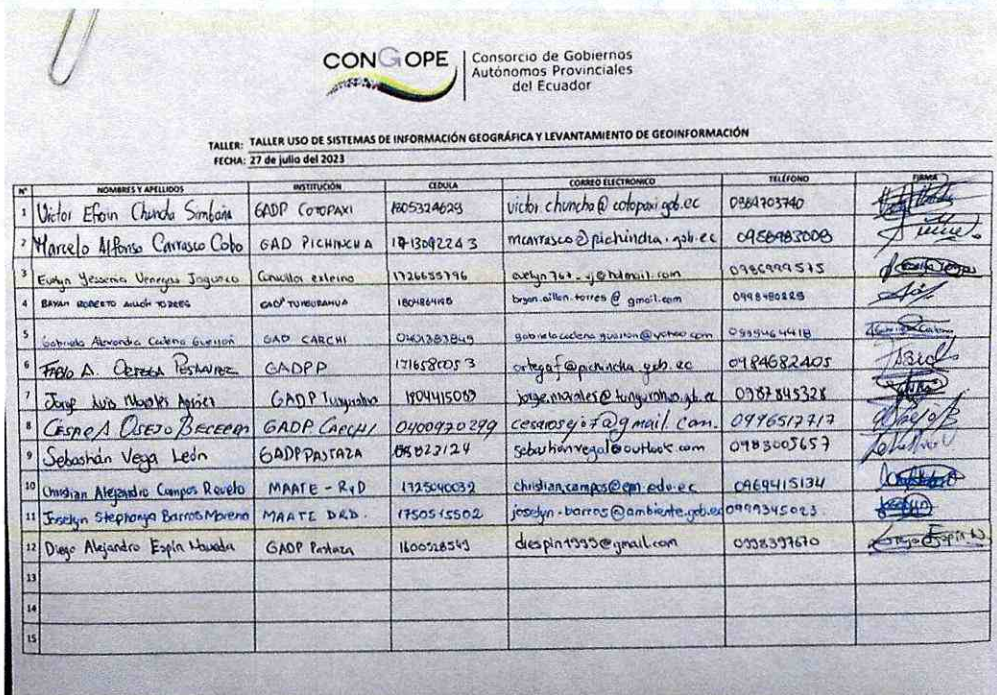 CONGOPE
Consorcio de Gobiernos
Autónomos Provinciales
del Ecuador
TALLER: TALLER USO DE SISTEMAS DE INFORMACIÓN GEOGRÁFICA Y LEVANTAMIENTO DE GEOINFORMACIÓN
FECHA: 27 de julio del 2023
N° NOMBRES Y APELLIDOS INSTITUCIÓN CEDULA CORREO ELECTRONICO TELÉFONO FIRMA
1 Victor Efrain Chuncha Simbaña GADP COTOPAXI 1805324629 victor.chuncha@cotopaxi.gob.ec 0984703740
2 Marcelo Alfonso Carrasco Cobo GAD PICHINCHA 1713092243 mcarrasco@pichincha.gob.ec
3 Evelyn Yessenia Venegas Consultor externo 1726655796 0986999575
4 ROBERTO TORRES GADP TUNGURAHUA @gmail.com
5 Gabriela Alexandra Cadena GAD CARCHI 0999464418
6 FABIO A. ORTEGA GADPP 1716580053 ortegaf@pichincha.gob.ec 0984682405
7 Jorge Luis Morales GADP Tungurahua 1804415089 jorge.morales@tungurahua.gob.ec 0987845328
8 CESAR A OSEJO BECERRA GADP CARCHI 0400920299 cesarosejo7@gmail.com. 0996517717
9 Sebastián Vega León GADP PASTAZA sebastianvegal@outlook.com 0983005657
10 Christian Alejandro Campos Revelo MAATE - RyD 1725040032 christian.campos@epn.edu.ec 0969415134
11 Joselyn Stephanya Barros Moreno MAATE DRD. 1750515502 joselyn.barros@ambiente.gob.ec 0999345023
12 Diego Alejandro Espín GADP Pastaza 1600528549 diespin1999@gmail.com 0998397670
13
14
15